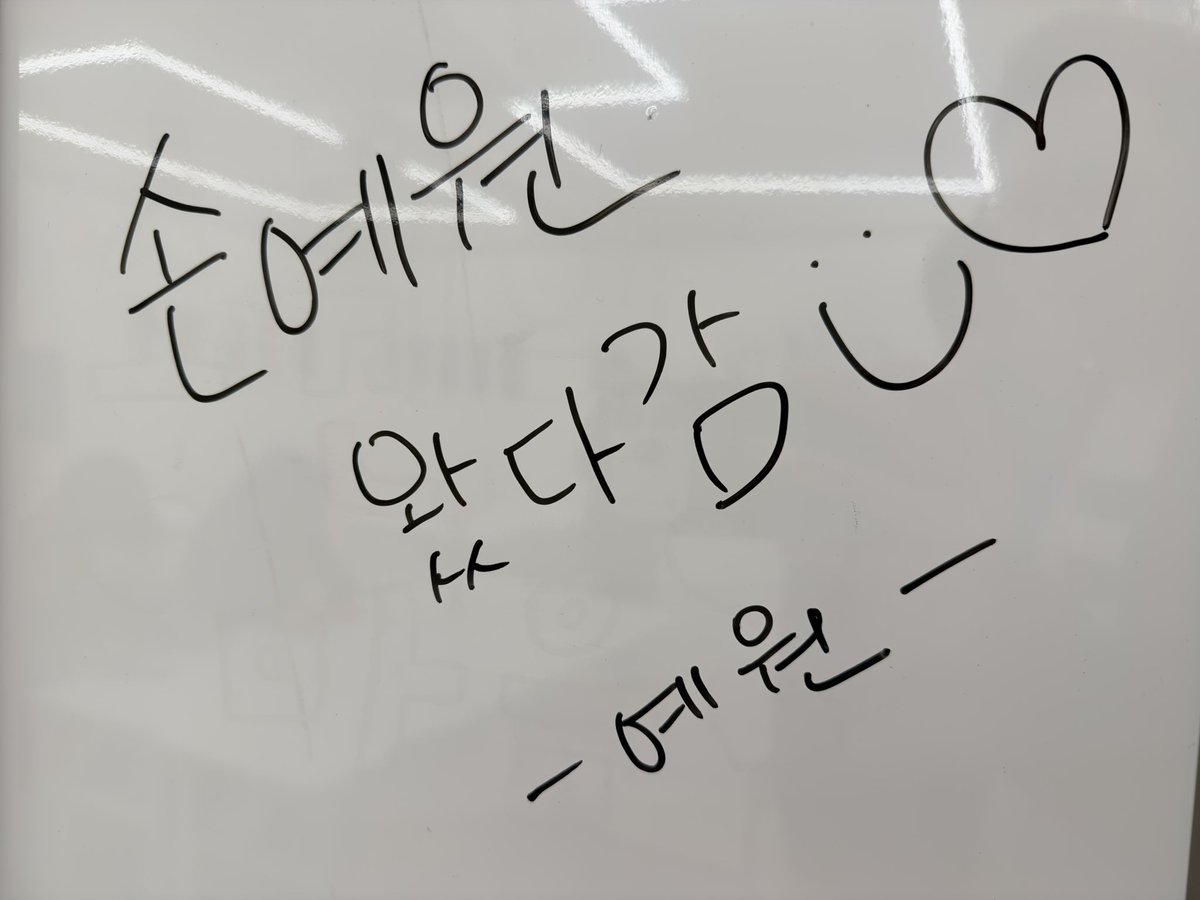 손예원
왔다감 ♡
- 예원 -